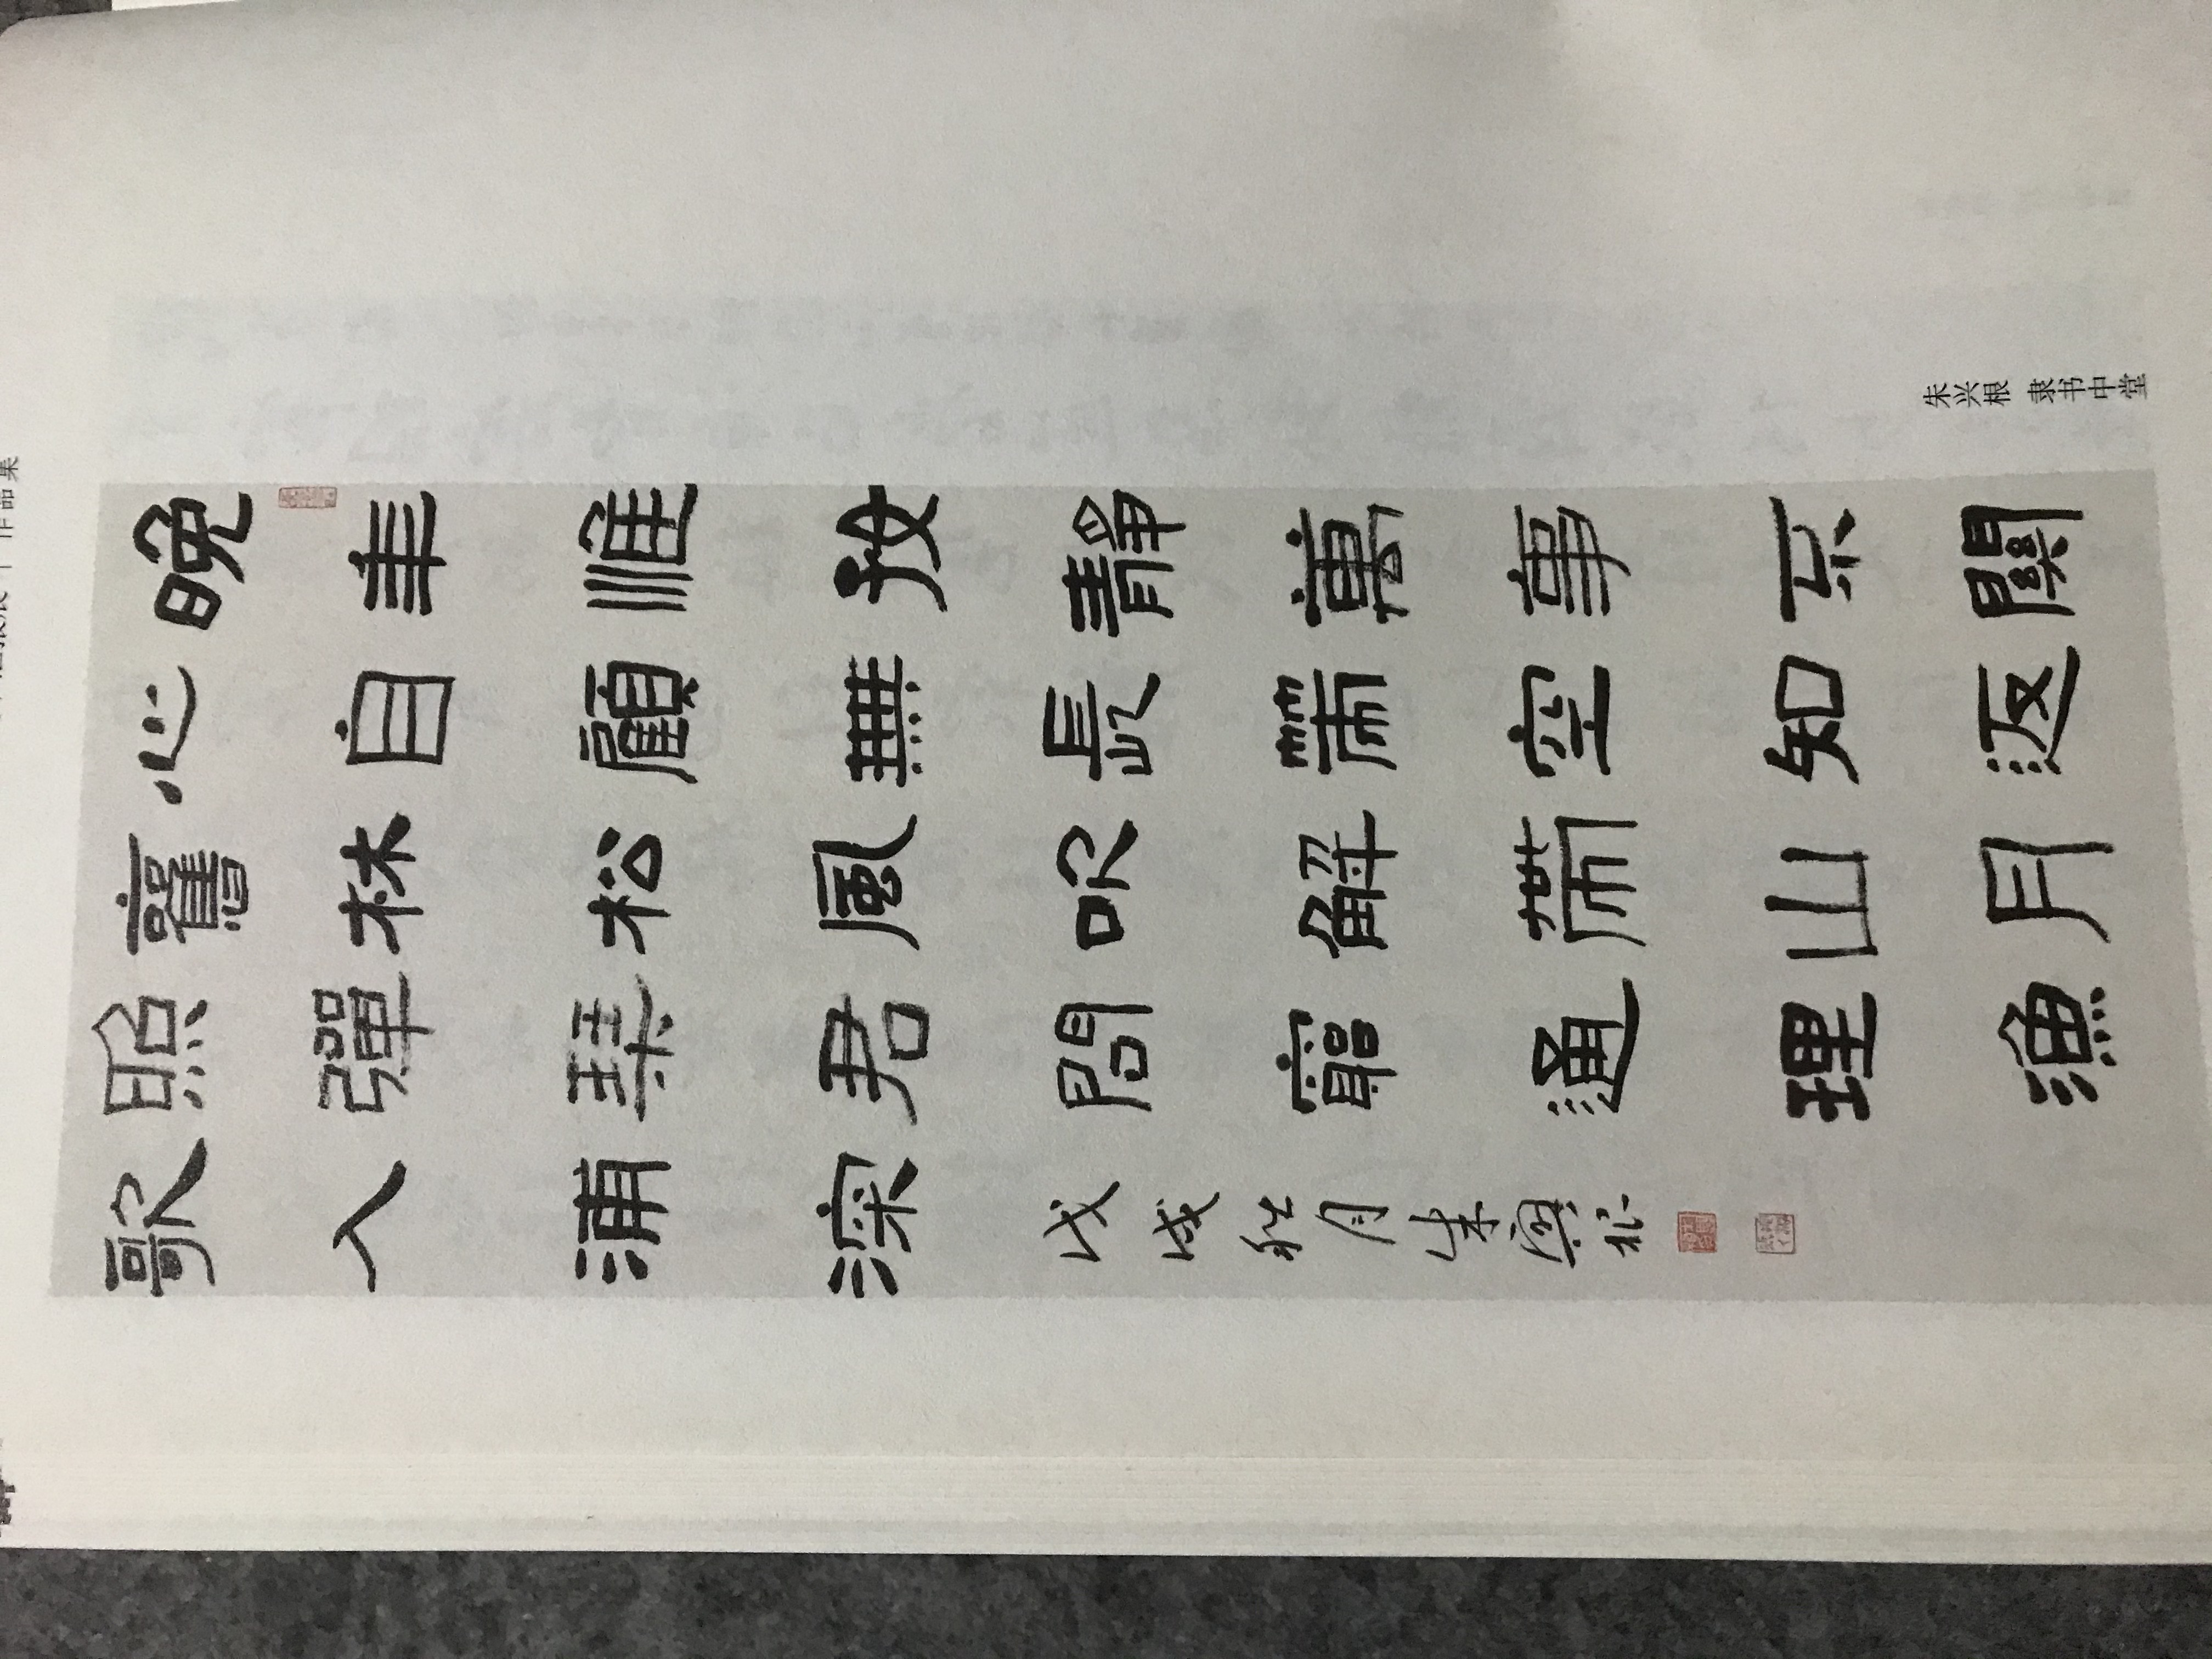 晚年惟好靜萬事不關
心自顧無長策空知返
舊林松風吹解帶山月
照彈琴君問窮通理漁
歌入浦深
戊戌秋月朱興根
朱兴根 隶书中堂
作品集